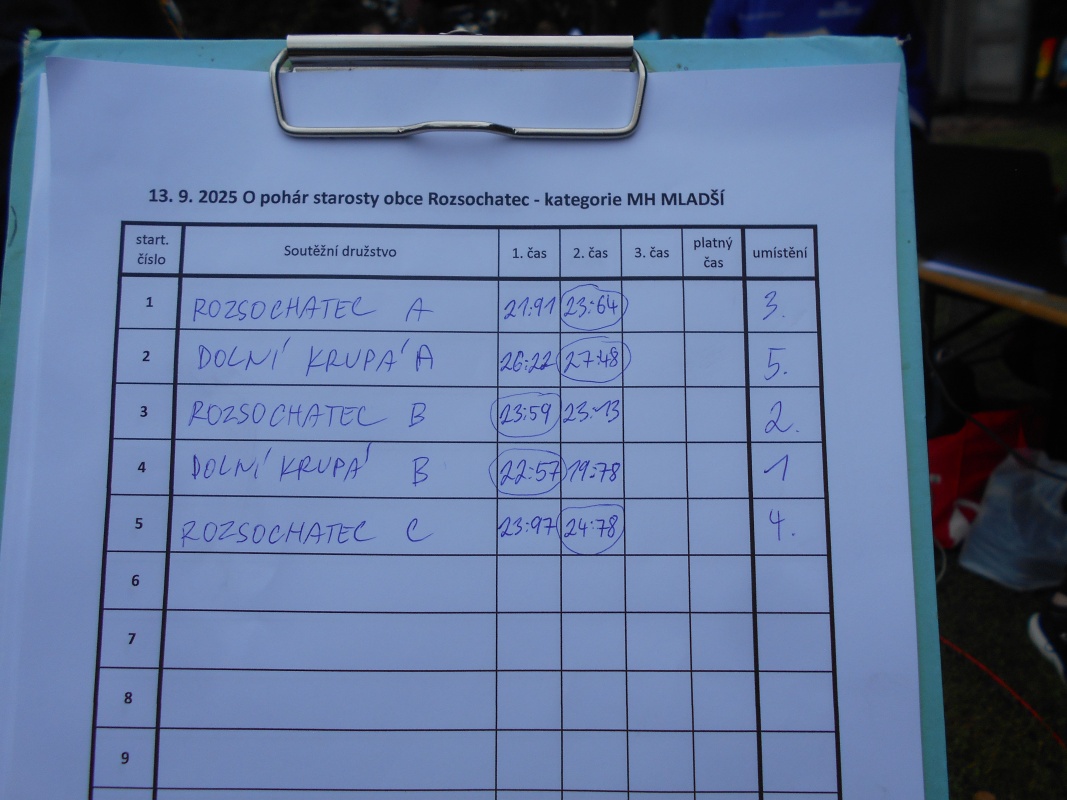 13. 9. 2025 O pohár starosty obce Rozsochatec - kategorie MH MLADŠÍ
start. číslo Soutěžní družstvo 1. čas 2. čas 3. čas platný čas umístění
1 ROZSOCHATEC A 21:91 23:64 3.
2 DOLNÍ KRUPÁ A 26:22 27:48 5.
3 ROZSOCHATEC B 23:59 23:13 2.
4 DOLNÍ KRUPÁ B 22:57 19:78 1
5 ROZSOCHATEC C 23:97 24:78 4.
6
7
8
9